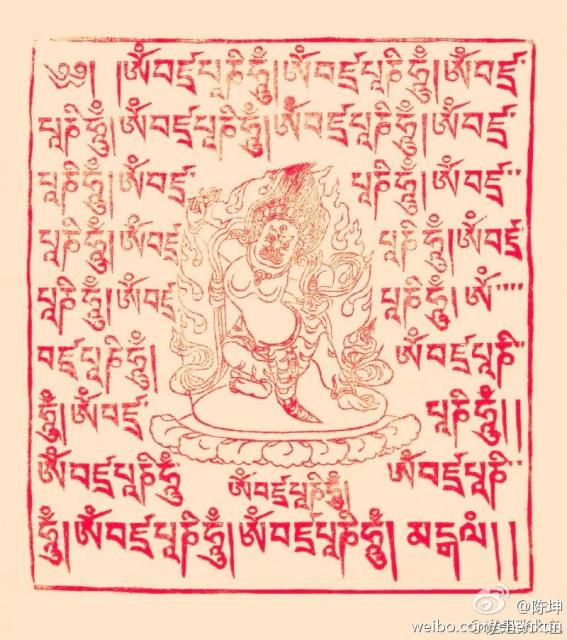 ༄༅། །ཨོཾབཛྲཔཱཎིཧཱུྃ།ཨོཾབཛྲཔཱཎིཧཱུྃ།ཨོཾབཛྲ་
པཱཎིཧཱུྃ།ཨོཾབཛྲཔཱཎིཧཱུྃ།ཨོཾབཛྲཔཱཎིཧཱུྃ།ཨོཾབཛྲ་
པཱཎིཧཱུྃ།ཨོཾབཛྲ་ པཱཎིཧཱུྃ།ཨོཾབཛྲ་་
པཱཎིཧཱུྃ།ཨོཾབཛྲ་ པཱཎིཧཱུྃ།ཨོཾབཛྲ
པཱཎིཧཱུྃ།ཨོཾབཛྲ པཱཎིཧཱུྃ། ཨོཾ་་་་
བཛྲཔཱཎིཧཱུྃ། ཨོཾབཛྲཔཱཎི་་
ཧཱུྃ།ཨོཾབཛྲ་ པཱཎིཧཱུྃ།།
ཨོཾབཛྲཔཱཎིཧཱུྃ ཨོཾབཛྲཔཱཎི་་
ཨོཾབཛྲཔཱཎིཧཱུྃ།
ཧཱུྃ།ཨོཾབཛྲཔཱཎིཧཱུྃ།ཨོཾབཛྲཔཱཎིཧཱུྃ། མངྒལཾ།།
@陈坤